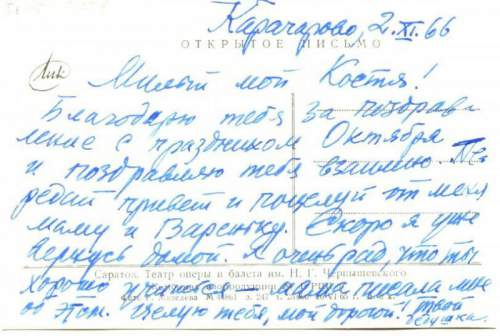 Карачарово, 2.XI.66
ОТКРЫТОЕ ПИСЬМО
Милый мой Костя!
Благодарю тебя за поздрав
ление с праздником Октября
и поздравляю тебя взаимно. Пе
редай привет и поцелуй от меня
маму и Вареньку. Скоро я уже
вернусь домой. Я очень рад, что ты
Саратов. Театр оперы и балета им. Н. Г. Чернышевского
хорошо учишься – мама писала мне
об этом. Целую тебя, мой дорогой! твой